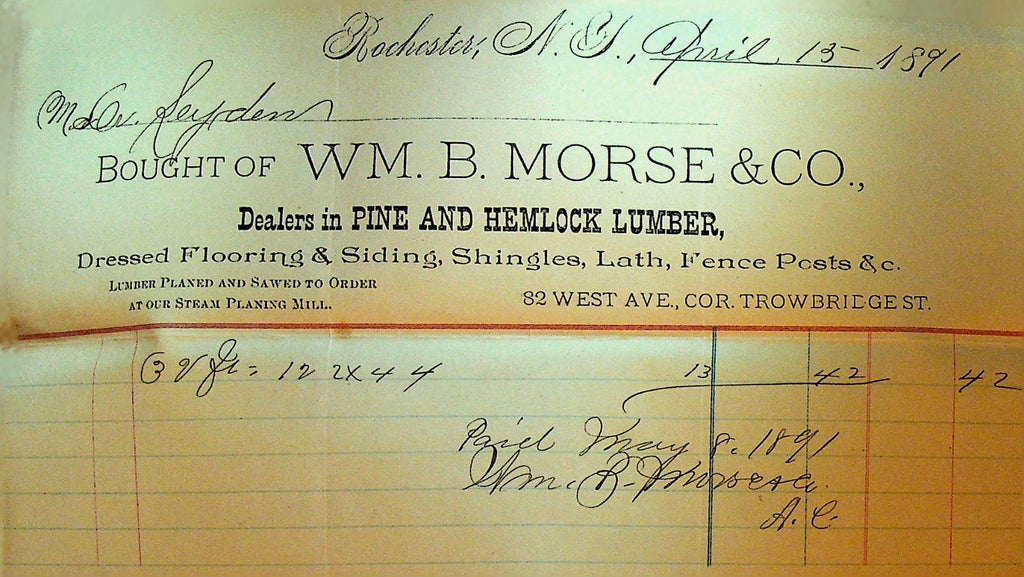 Rochester, N.Y., April 15 1891
M Dr. Leyden
BOUGHT OF WM. B. MORSE & CO.,
Dealers in PINE AND HEMLOCK LUMBER,
Dressed Flooring & Siding, Shingles, Lath, Fence Posts &c.
LUMBER PLANED AND SAWED TO ORDER
AT OUR STEAM PLANING MILL.
82 WEST AVE., COR. TROWBRIDGE ST.
32 ft = 12 2x4 4 13 42 42
Paid May 8. 1891
Wm. B. Morse & Co.
A. C.